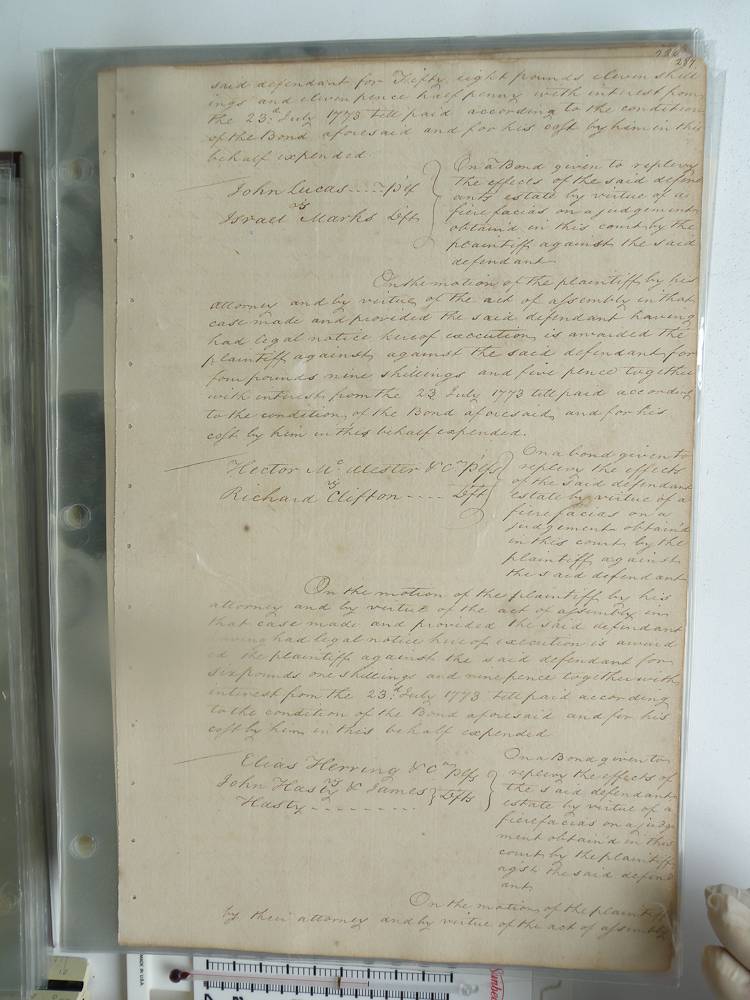 286
287
said defendant for Fifty eight pounds eleven shill
ings and eleven pence half penny with interest from
the 23.d July 1773 till paid according to the condition
of the Bond aforesaid and for his cost by him in this
behalf expended
John Lucas .... Plf
vs
Israel Marks Deft
On a Bond given to replevy
the effects of the said defend
ants estate by virtue of a
fierefacias on a judgement
obtain'd in this court by the
plaintiff against the said
defendant
On the motion of the plaintiff by his
attorney and by virtue of the act of assembly in that
case made and provided the said defendant having
had legal notice hereof execution is awarded the
plaintiff against against the said defendant for
four pounds nine shillings and five pence together
with interest from the 23 July 1773 till paid according
to the condition of the Bond aforesaid and for his
cost by him in this behalf expended.
Hector Mc Alester & Co Plfs
vs
Richard Clifton .... Deft
On a bond given to
replevy the effects
of the said defendant
estate by virtue of a
fierefacias on a
judgement obtain'd
in this court by the
plaintiff against
the said defendant
On the motion of the plaintiff by his
attorney and by virtue of the act of assembly in
that case made and provided the said defendant
having had legal notice hereof execution is award
ed the plaintiff against the said defendant for
six pounds one shillings and nine pence together with
interest from the 23.d July 1773 till paid according
to the condition of the Bond aforesaid and for his
cost by him in this behalf expended
Elias Herring & Co Plfs
vs
John Hasty & James Defts
Hasty
On a Bond given to
replevy the effects of
the said defendants
estate by virtue of a
fierefacias on a judge
ment obtain'd in this
court by the plaintiff
agst the said defend
ant
On the motion of the plaintiff
by their attorney and by virtue of the act of assembly
MADE IN U.S.A.